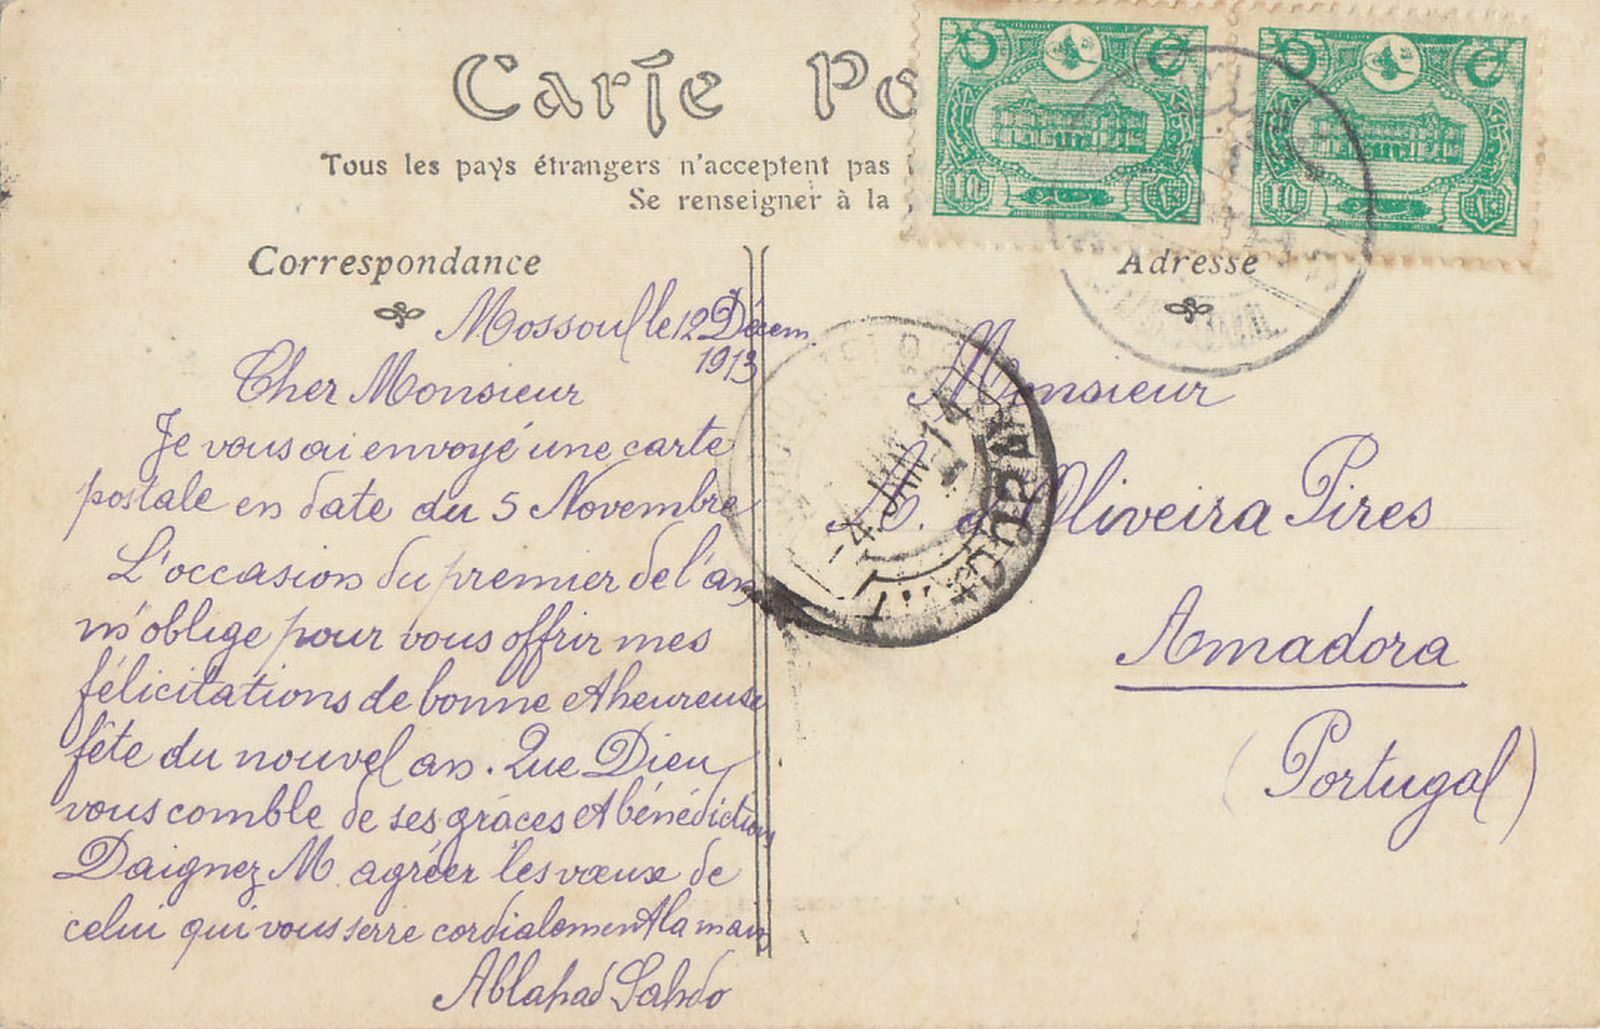 Carte Po
Tous les pays étrangers n'acceptent pas
Se renseigner à la
10 10
Correspondance
Mossoul le 12 Décem.
1913
Cher Monsieur
Je vous ai envoyé une carte
postale en date du 5 Novembre
L'occasion du premier de l'an
m'oblige pour vous offrir mes
félicitations de bonne et heureuse
fête du nouvel an. Que Dieu
vous comble de ses grâces et bénédictions
Daignez M. agréer les vœux de
celui qui vous serre cordialement la main
Ablahad Sahdo
Adresse
Monsieur
Oliveira Pires
Amadora
(Portugal)
-4 JAN 14